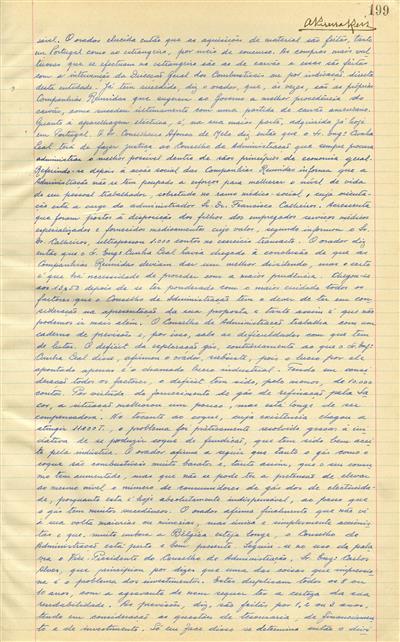 199
sivel. O orador elucida então que as aquisições de material são feitas, tanto
em Portugal como no estrangeiro, por meio de concurso. As compras mais vul
tuosas que se efectuam no estrangeiro são as de carvão e essas são feitas
com a intervenção da Direcção Geral dos Combustiveis ou por indicação directa
desta entidade. Já tem sucedido, diz o orador, que, às vezes, são as próprias
Companhias Reunidas que sugerem ao Governo a melhor procedência do
carvão, como sucedeu ultimamente com uma partida de carvão americano.
Quanto a aparelhagem eléctrica, é, na sua maior parte, adquirida já hoje
em Portugal. O Sr. Conselheiro Afonso de Melo diz então que o Sr. Engº Cunha
Leal terá de fazer justiça ao Conselho de Administração que sempre procura
administrar o melhor possivel dentro de sãos principios de economia geral.
Referindo-se depois à acção social das Companhias Reunidas informa que a
Administração não se tem poupado a esforços para melhorar o nivel de vida
do seu pessoal trabalhador, sobretudo no ramo médico social, cuja orienta-
ção está a cargo do administrador Sr. Dr. Francisco Calheiros. Acrescenta
que foram postos à disposição dos filhos dos empregados serviços médicos
especializados e fornecidos medicamentos cujo valor, segundo informou o Sr.
Dr. Calheiros, ultrapassou 1.000 contos no exercicio transacto. O orador diz
então que o Sr. Engº Cunha Leal havia chegado à conclusão de que as
Companhias Reunidas deviam dar um melhor dividendo, mas o certo
é que há necessidade de proceder com a maior prudência. Chegou-se
aos 10$50 depois de se ter ponderado com o maior cuidado todos os
factores que o Conselho de Administração tem o dever de ter em con-
sideração na apresentação da sua proposta e tanto assim é que não
podemos ir mais além. O Conselho de Administração trabalha com um
caderno de previsões e, por isso, sabe as dificuldades com que tem
de lutar. O deficit da exploração gás, contràriamente ao que o Sr. Engº
Cunha Leal disse, afirmou o orador, subsiste, pois o lucro por ele
apontado apenas é o chamado lucro industrial. Tendo em consi-
deração todos os factores, o deficit tem sido, pelo menos, de 10.000
contos. Por virtude do fornecimento do gás de refinação pela Sa
cor, a situação melhorou um pouco, mas está longe de ser
compensadora. No tocante ao coque, cuja existência chegou a
atingir 11000 T., o problema foi práticamente resolvido graças à ini
ciativa de se produzir coque de fundição, que tem sido bem acei
te pela indústria. O orador afirma a seguir que tanto o gás como o
coque são combustiveis muito baratos e, tanto assim, que o seu consu
mo tem aumentado, mas que não se pode ter a pretensão de elevar
ao mesmo nivel o número de consumidores de gás dos de electricida-
de, porquanto esta é hoje absolutamente indispensável, ao passo que
o gás tem muitos sucedâneos. O orador afirma finalmente que não vê
à sua volta maiorias ou minorias, mas única e simplesmente accionis-
tas e que, muito embora a Bélgica esteja longe, o Conselho de
Administração está perto e bem presente. Seguiu-se no uso da pala
vra o Sr. Presidente do Conselho de Administração, Sr. Engº Carlos
Alves, que principiou por dizer que uma das coisas que impressio-
na é o problema dos investimentos. Estes duplicam todos os 8 ou
10 anos, com a agravante de nem sequer ter a certeza da sua
rendabilidade. As previsões, diz, são feitas por 1, 2 ou 3 anos,
tendo em consideração as questões de tesouraria, de financiamen-
to e de investimento. Só em face disso se determina então o divi-